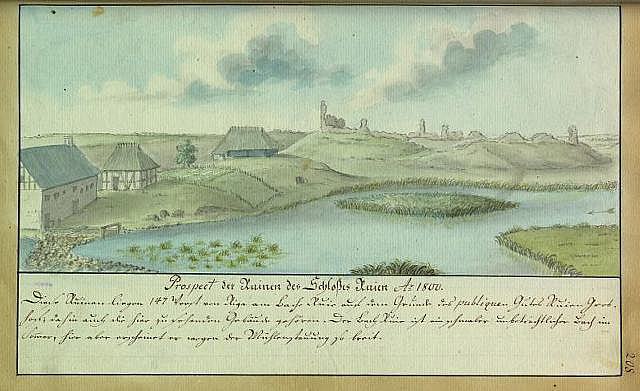 Prospect der Ruinen des Schloßes Ruien Aᵒ 1800.
Diese Ruinen liegen 147 Werst von Riga am Bach Ruie auf dem Grunde des publiquen Gutes Ruien Gros-
hof, dahin auch die hier zu sehenden Gebäude gehören. Der Bach Ruie ist ein schmaler unbeträchtlicher Bach im
Sommer, hier aber erscheinet er wegen der Mühlenstauung so breit.
203